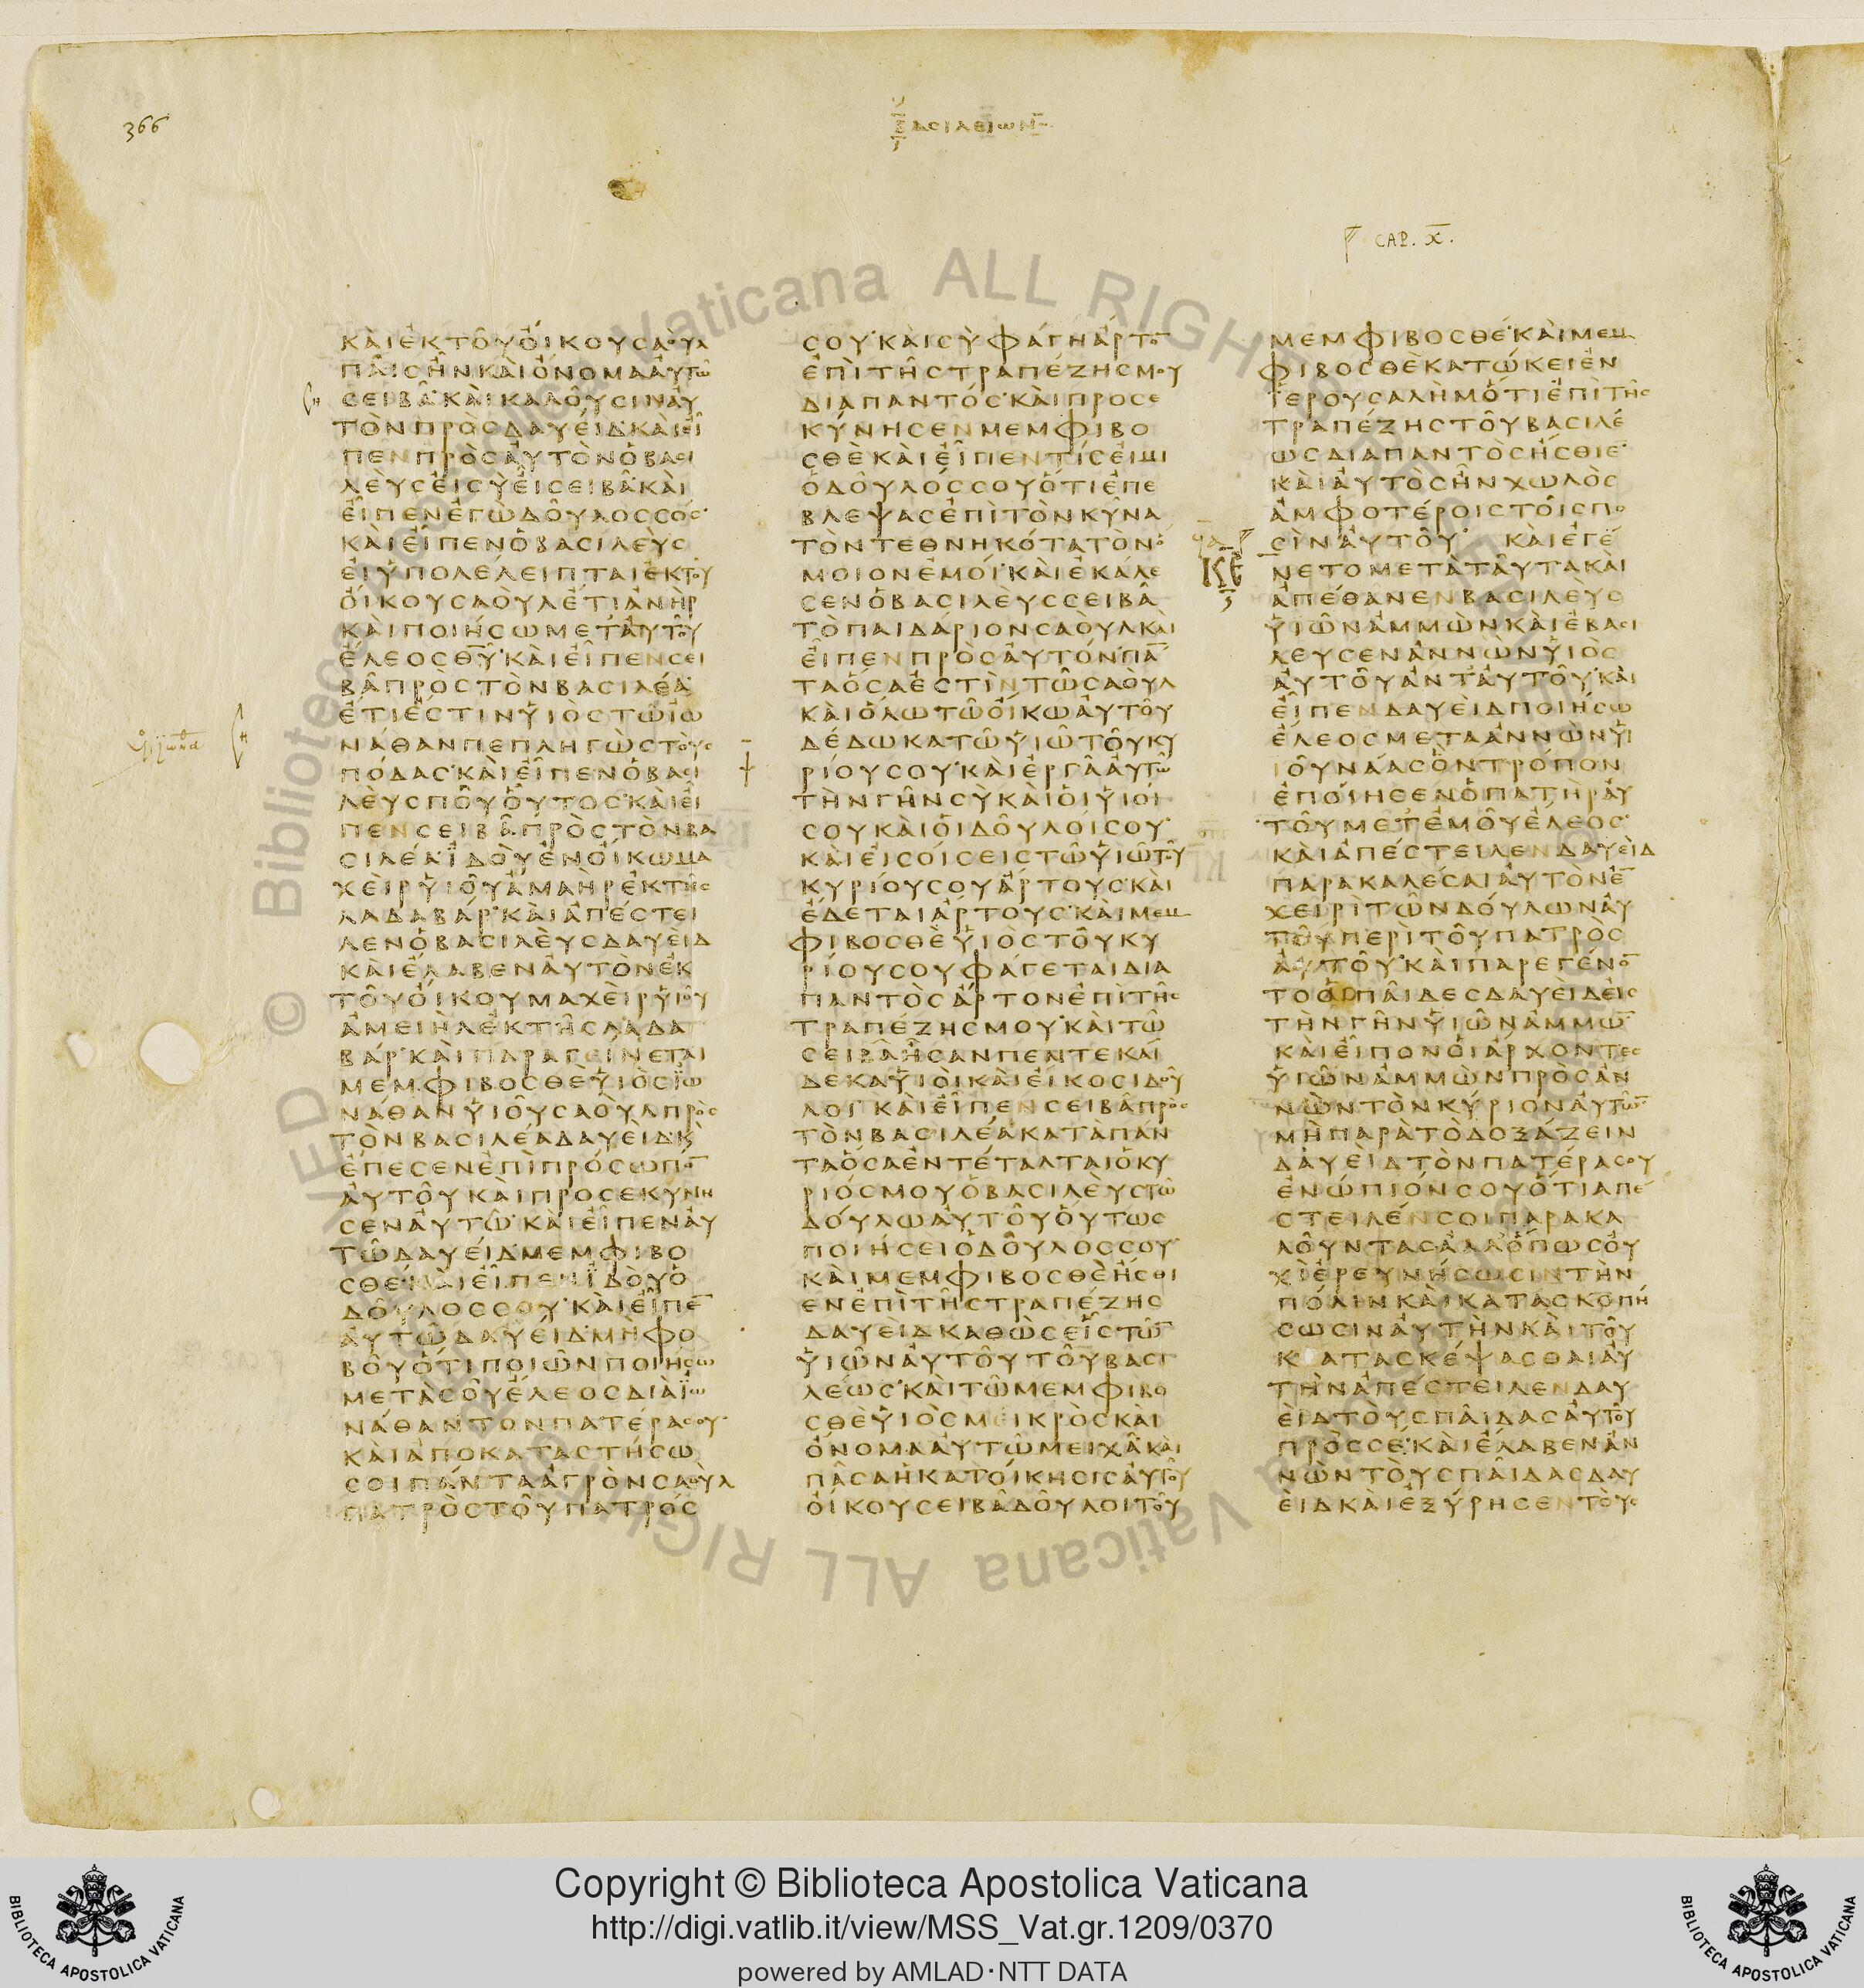 366
ΒΑCΙΛΕΙΩΝ
CAP. X.
ΚΑΙΕΚΤΟΥΟΙΚΟΥCΑΟΥΛ
ΠΑΙCΗΝΚΑΙΟΝΟΜΑΑΥΤΩ
CΕΙΒΑ·ΚΑΙΚΑΛΟΥCΙΝΑΥ
ΤΟΝΠΡΟCΔΑΥΕΙΔ·ΚΑΙΕΙ
ΠΕΝΠΡΟCΑΥΤΟΝΟΒΑCΙ
ΛΕΥCΕΙCΥΕΙCΕΙΒΑ·ΚΑΙ
ΕΙΠΕΝΕΓΩΔΟΥΛΟCCΟC·
ΚΑΙΕΙΠΕΝΟΒΑCΙΛΕΥC
ΕΙΥΠΟΛΕΛΕΙΠΤΑΙΕΚΤΟΥ
ΟΙΚΟΥCΑΟΥΛΕΤΙΑΝΗΡ
ΚΑΙΠΟΙΗCΩΜΕΤΑΥΤΟΥ
ΕΛΕΟCΘΥ̅·ΚΑΙΕΙΠΕΝCΕΙ
ΒΑΠΡΟCΤΟΝΒΑCΙΛΕΑ·
ΕΤΙΕCΤΙΝΥΙΟCΤΩΪΩ
ΝΑΘΑΝΠΕΠΛΗΓΩCΤΟΥC
ΠΟΔΑC·ΚΑΙΕΙΠΕΝΟΒΑCΙ
ΛΕΥCΠΟΥΟΥΤΟC·ΚΑΙΕΙ
ΠΕΝCΕΙΒΑΠΡΟCΤΟΝΒΑ
CΙΛΕΑ·ΪΔΟΥΕΝΟΙΚΩΜΑ
ΧΕΙΡΥΙΟΥΑΜΑΗΡΕΚΤΗC
ΛΑΔΑΒΑΡ·ΚΑΙΑΠΕCΤΕΙ
ΛΕΝΟΒΑCΙΛΕΥCΔΑΥΕΙΔ
ΚΑΙΕΛΑΒΕΝΑΥΤΟΝΕΚ
ΤΟΥΟΙΚΟΥΜΑΧΕΙΡΥΙΟΥ
ΑΜΕΙΗΛΕΚΤΗCΛΑΔΑ
ΒΑΡ·ΚΑΙΠΑΡΑΓΕΙΝΕΤΑΙ
ΜΕΜΦΙΒΟCΘΕΥΙΟCΪΩ
ΝΑΘΑΝΥΙΟΥCΑΟΥΛΠΡΟC
ΤΟΝΒΑCΙΛΕΑΔΑΥΕΙΔΚ
ΕΠΕCΕΝΕΠΙΠΡΟCΩΠΟ̅
ΑΥΤΟΥΚΑΙΠΡΟCΕΚΥΝΗ
CΕΝΑΥΤΩ·ΚΑΙΕΙΠΕΝΑΥ
ΤΩΔΑΥΕΙΔ·ΜΕΜΦΙΒΟ
CΘΕ·ΚΑΙΕΙΠΕΝΪΔΟΥΟ
ΔΟΥΛΟCCΟΥ·ΚΑΙΕΙΠΕ̅
ΑΥΤΩΔΑΥΕΙΔ·ΜΗΦΟ
ΒΟΥΟΤΙΠΟΙΩΝΠΟΙΗCΩ
ΜΕΤΑCΟΥΕΛΕΟCΔΙΑΪΩ
ΝΑΘΑΝΤΟΝΠΑΤΕΡΑCΟΥ·
ΚΑΙΑΠΟΚΑΤΑCΤΗCΩ
CΟΙΠΑΝΤΑΑΓΡΟΝCΑΟΥΛ
ΠΑΤΡΟCΤΟΥΠΑΤΡΟC
CΟΥ·ΚΑΙCΥΦΑΓΗΑΡΤΟ̅
ΕΠΙΤΗCΤΡΑΠΕΖΗCΜΟΥ
ΔΙΑΠΑΝΤΟC·ΚΑΙΠΡΟCΕ
ΚΥΝΗCΕΝΜΕΜΦΙΒΟ
CΘΕΚΑΙΕΙΠΕΝΤΙCΕΙΜΙ
ΟΔΟΥΛΟCCΟΥΟΤΙΕΠΕ
ΒΛΕΨΑCΕΠΙΤΟΝΚΥΝΑ
ΤΟΝΤΕΘΝΗΚΟΤΑΤΟΝΟ
ΜΟΙΟΝΕΜΟΙ·ΚΑΙΕΚΑΛΕ
CΕΝΟΒΑCΙΛΕΥCCΕΙΒΑ
ΤΟΠΑΙΔΑΡΙΟΝCΑΟΥΛΚΑΙ
ΕΙΠΕΝΠΡΟCΑΥΤΟΝΠΑ̅
ΤΑΟCΑΕCΤΙΝΤΩCΑΟΥΛ
ΚΑΙΟΛΩΤΩΟΙΚΩΑΥΤΟΥ
ΔΕΔΩΚΑΤΩΥΙΩΤΟΥΚΥ
ΡΙΟΥCΟΥ·ΚΑΙΕΡΓΑΑΥΤΩ
ΤΗΝΓΗΝCΥΚΑΙΟΙΥΙΟΙ
CΟΥΚΑΙΟΙΔΟΥΛΟΙCΟΥ·
ΚΑΙΕΙCΟΙCΕΙCΤΩΥΙΩΤΟΥ
ΚΥΡΙΟΥCΟΥΑΡΤΟΥC·ΚΑΙ
ΕΔΕΤΑΙΑΡΤΟΥC·ΚΑΙΜΕΜ
ΦΙΒΟCΘΕΥΙΟCΤΟΥΚΥ
ΡΙΟΥCΟΥΦΑΓΕΤΑΙΔΙΑ
ΠΑΝΤΟCΑΡΤΟΝΕΠΙΤΗC
ΤΡΑΠΕΖΗCΜΟΥ·ΚΑΙΤΩ
CΕΙΒΑΗCΑΝΠΕΝΤΕΚΑΙ
ΔΕΚΑΥΙΟΙΚΑΙΕΙΚΟCΙΔΟΥ
ΛΟΙ·ΚΑΙΕΙΠΕΝCΕΙΒΑΠΡΟC
ΤΟΝΒΑCΙΛΕΑΚΑΤΑΠΑΝ
ΤΑΟCΑΕΝΤΕΤΑΛΤΑΙΟΚΥ
ΡΙΟCΜΟΥΟΒΑCΙΛΕΥCΤΩ
ΔΟΥΛΩΑΥΤΟΥΟΥΤΩC
ΠΟΙΗCΕΙΟΔΟΥΛΟCCΟΥ·
ΚΑΙΜΕΜΦΙΒΟCΘΕΗCΘΙ
ΕΝΕΠΙΤΗCΤΡΑΠΕΖΗC
ΔΑΥΕΙΔΚΑΘΩCΕΙCΤΩ̅
ΥΙΩΝΑΥΤΟΥΤΟΥΒΑCΙ
ΛΕΩC·ΚΑΙΤΩΜΕΜΦΙΒΟ
CΘΕΥΙΟCΜΕΙΚΡΟCΚΑΙ
ΟΝΟΜΑΑΥΤΩΜΕΙΧΑ·ΚΑΙ
ΠΑCΑΗΚΑΤΟΙΚΗCΙCΑΥΤΟΥ
ΟΙΚΟΥCΕΙΒΑΔΟΥΛΟΙΤΟΥ
ΜΕΜΦΙΒΟCΘΕ·ΚΑΙΜΕΜ
ΦΙΒΟCΘΕΚΑΤΩΚΕΙΕΝ
ΪΕΡΟΥCΑΛΗΜΟΤΙΕΠΙΤΗC
ΤΡΑΠΕΖΗCΤΟΥΒΑCΙΛΕ
ΩCΔΙΑΠΑΝΤΟCΗCΘΙΕ·
ΚΑΙΑΥΤΟCΗΝΧΩΛΟC
ΑΜΦΟΤΕΡΟΙCΤΟΙCΠΟ
CΙΝΑΥΤΟΥ· ΚΑΙΕΓΕ
ΚΕ
ΝΕΤΟΜΕΤΑΤΑΥΤΑΚΑΙ
ΑΠΕΘΑΝΕΝΒΑCΙΛΕΥC
ΥΙΩΝΑΜΜΩΝΚΑΙΕΒΑCΙ
ΛΕΥCΕΝΑΝΝΩΝΥΙΟC
ΑΥΤΟΥΑΝΤΑΥΤΟΥ·ΚΑΙ
ΕΙΠΕΝΔΑΥΕΙΔΠΟΙΗCΩ
ΕΛΕΟCΜΕΤΑΑΝΝΩΝΥΙ
ΟΥΝΑΑCΟΝΤΡΟΠΟΝ
ΕΠΟΙΗCΕΝΟΠΑΤΗΡΑΥ
ΤΟΥΜΕΤΕΜΟΥΕΛΕΟC·
ΚΑΙΑΠΕCΤΕΙΛΕΝΔΑΥΕΙΔ
ΠΑΡΑΚΑΛΕCΑΙΑΥΤΟΝΕ̅
ΧΕΙΡΙΤΩΝΔΟΥΛΩΝΑΥ
ΤΟΥΠΕΡΙΤΟΥΠΑΤΡΟC
ΑΥΤΟΥ·ΚΑΙΠΑΡΕΓΕΝΟ̅
ΤΟΟΙΠΑΙΔΕCΔΑΥΕΙΔΕΙC
ΤΗΝΓΗΝΥΙΩΝΑΜΜΩ̅
ΚΑΙΕΙΠΟΝΟΙΑΡΧΟΝΤΕC
ΥΙΩΝΑΜΜΩΝΠΡΟCΑΝ
ΝΩΝΤΟΝΚΥΡΙΟΝΑΥΤΩ̅
ΜΗΠΑΡΑΤΟΔΟΞΑΖΕΙΝ
ΔΑΥΕΙΔΤΟΝΠΑΤΕΡΑCΟΥ
ΕΝΩΠΙΟΝCΟΥΟΤΙΑΠΕ
CΤΕΙΛΕΝCΟΙΠΑΡΑΚΑ
ΛΟΥΝΤΑCΑΛΛΟΠΩCΟΥ
ΧΙΕΡΕΥΝΗCΩCΙΝΤΗΝ
ΠΟΛΙΝΚΑΙΚΑΤΑCΚΟΠΗ
CΩCΙΝΑΥΤΗΝΚΑΙΤΟΥ
ΚΑΤΑCΚΕΨΑCΘΑΙΑΥ
ΤΗΝΑΠΕCΤΕΙΛΕΝΔΑΥ
ΕΙΔΤΟΥCΠΑΙΔΑCΑΥΤΟΥ
ΠΡΟCCΕ·ΚΑΙΕΛΑΒΕΝΑΝ
ΝΩΝΤΟΥCΠΑΙΔΑCΔΑΥ
ΕΙΔΚΑΙΕΞΥΡΗCΕΝΤΟΥC
© Biblioteca Apostolica Vaticana ALL RIGHTS RESERVED
Copyright © Biblioteca Apostolica Vaticana
http://digi.vatlib.it/view/MSS_Vat.gr.1209/0370
powered by AMLAD·NTT DATA
BIBLIOTECA APOSTOLICA VATICANA
BIBLIOTECA APOSTOLICA VATICANA